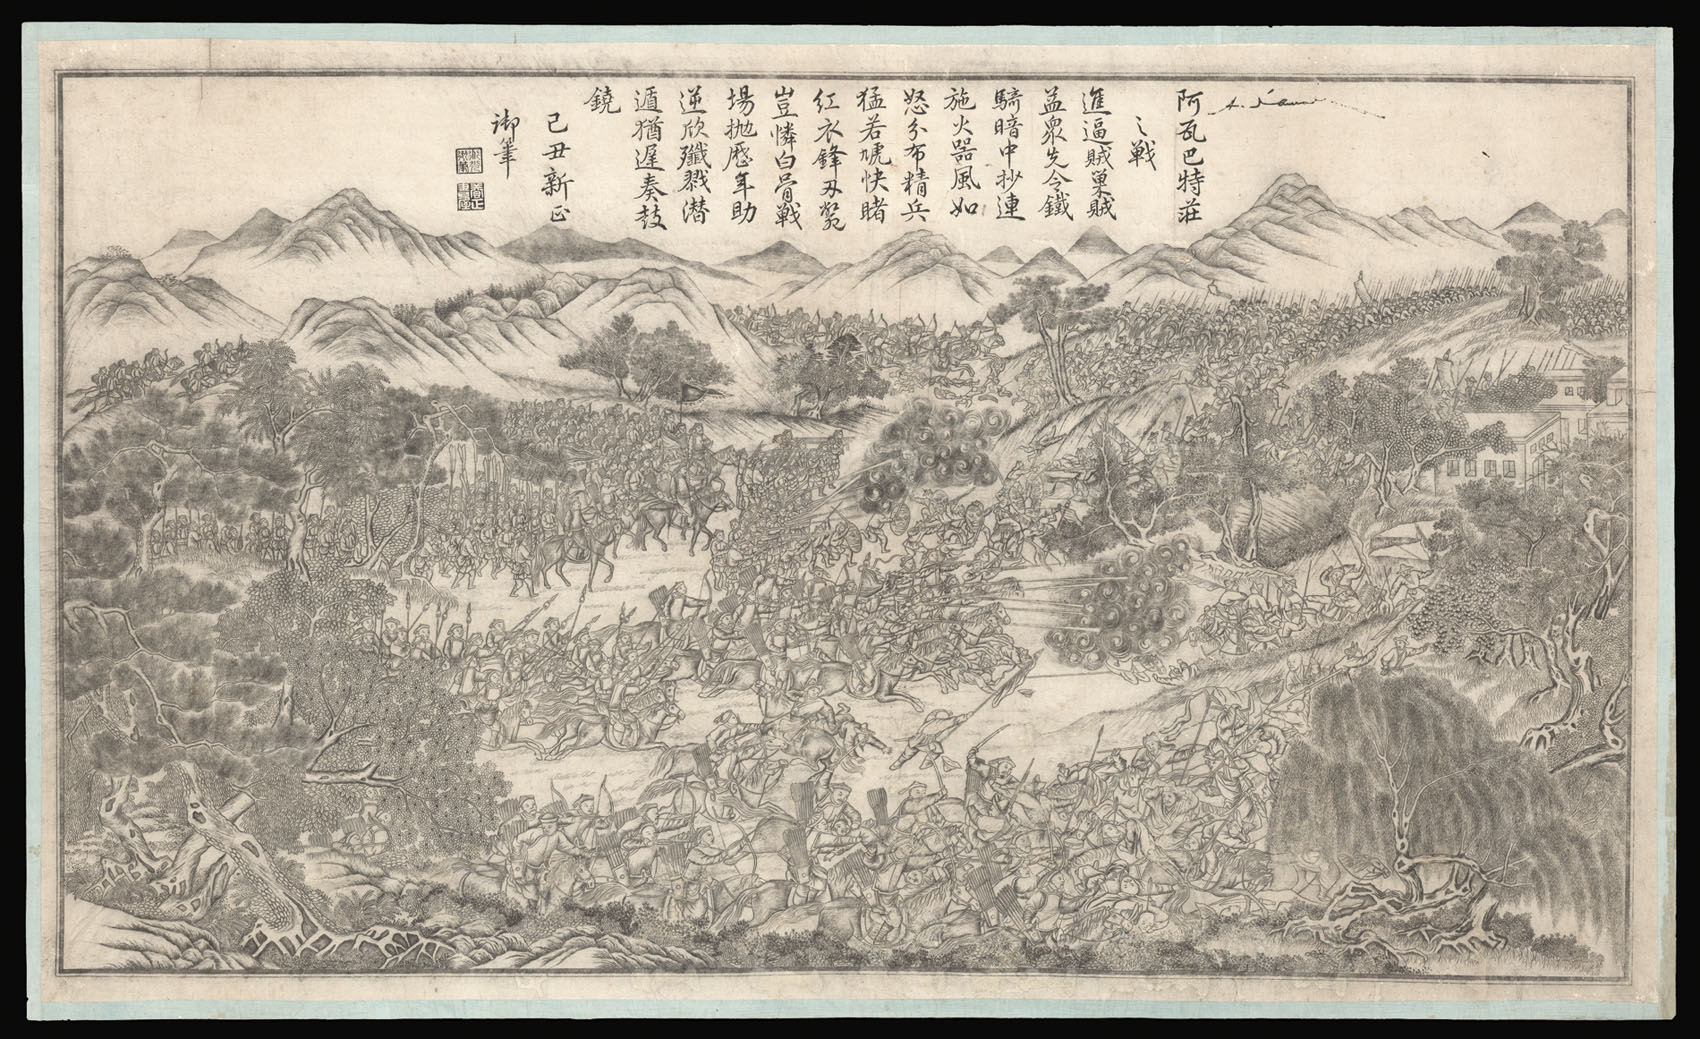 阿瓦巴特莊
之戰
進逼賊巢賊
益衆先令鐵
騎暗中抄連
施火器風如
怒分布精兵
猛若虓快睹
紅衣鋒刃斃
豈憐白骨戰
場拋歷年助
逆欣殲戮潛
遁猶遲奏鼓
鐃
己丑新正
御筆